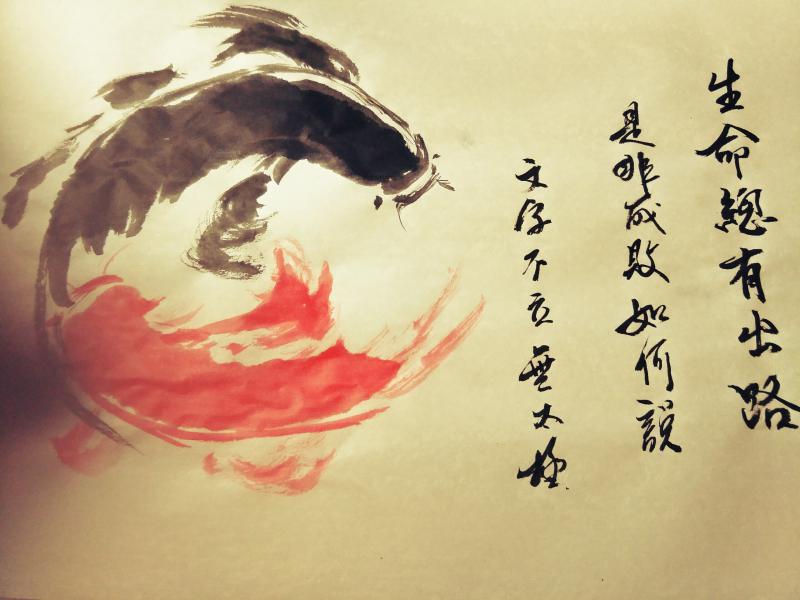 生命總有出路
是非成敗如何說
文字不立無太極